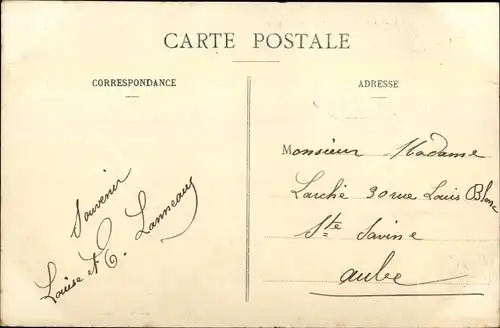 CARTE POSTALE
CORRESPONDANCE
Souvenir
Louise et E. Lanneau
ADRESSE
Monsieur Madame
Larché 30 rue Louis Blanc
Ste Savine
aube